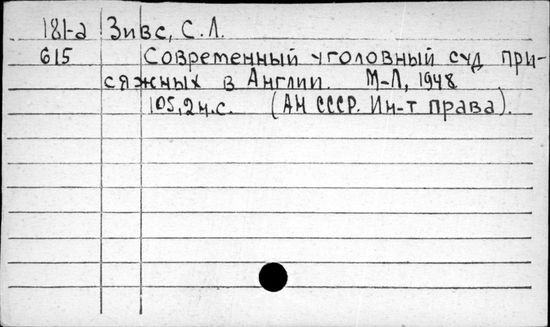 181-а Зивс, С.Л.
615 Современный уголовный суд при-
сяжных в Англии. М-Л, 1948
105,2н.с. (АН СССР. Ин-т права).